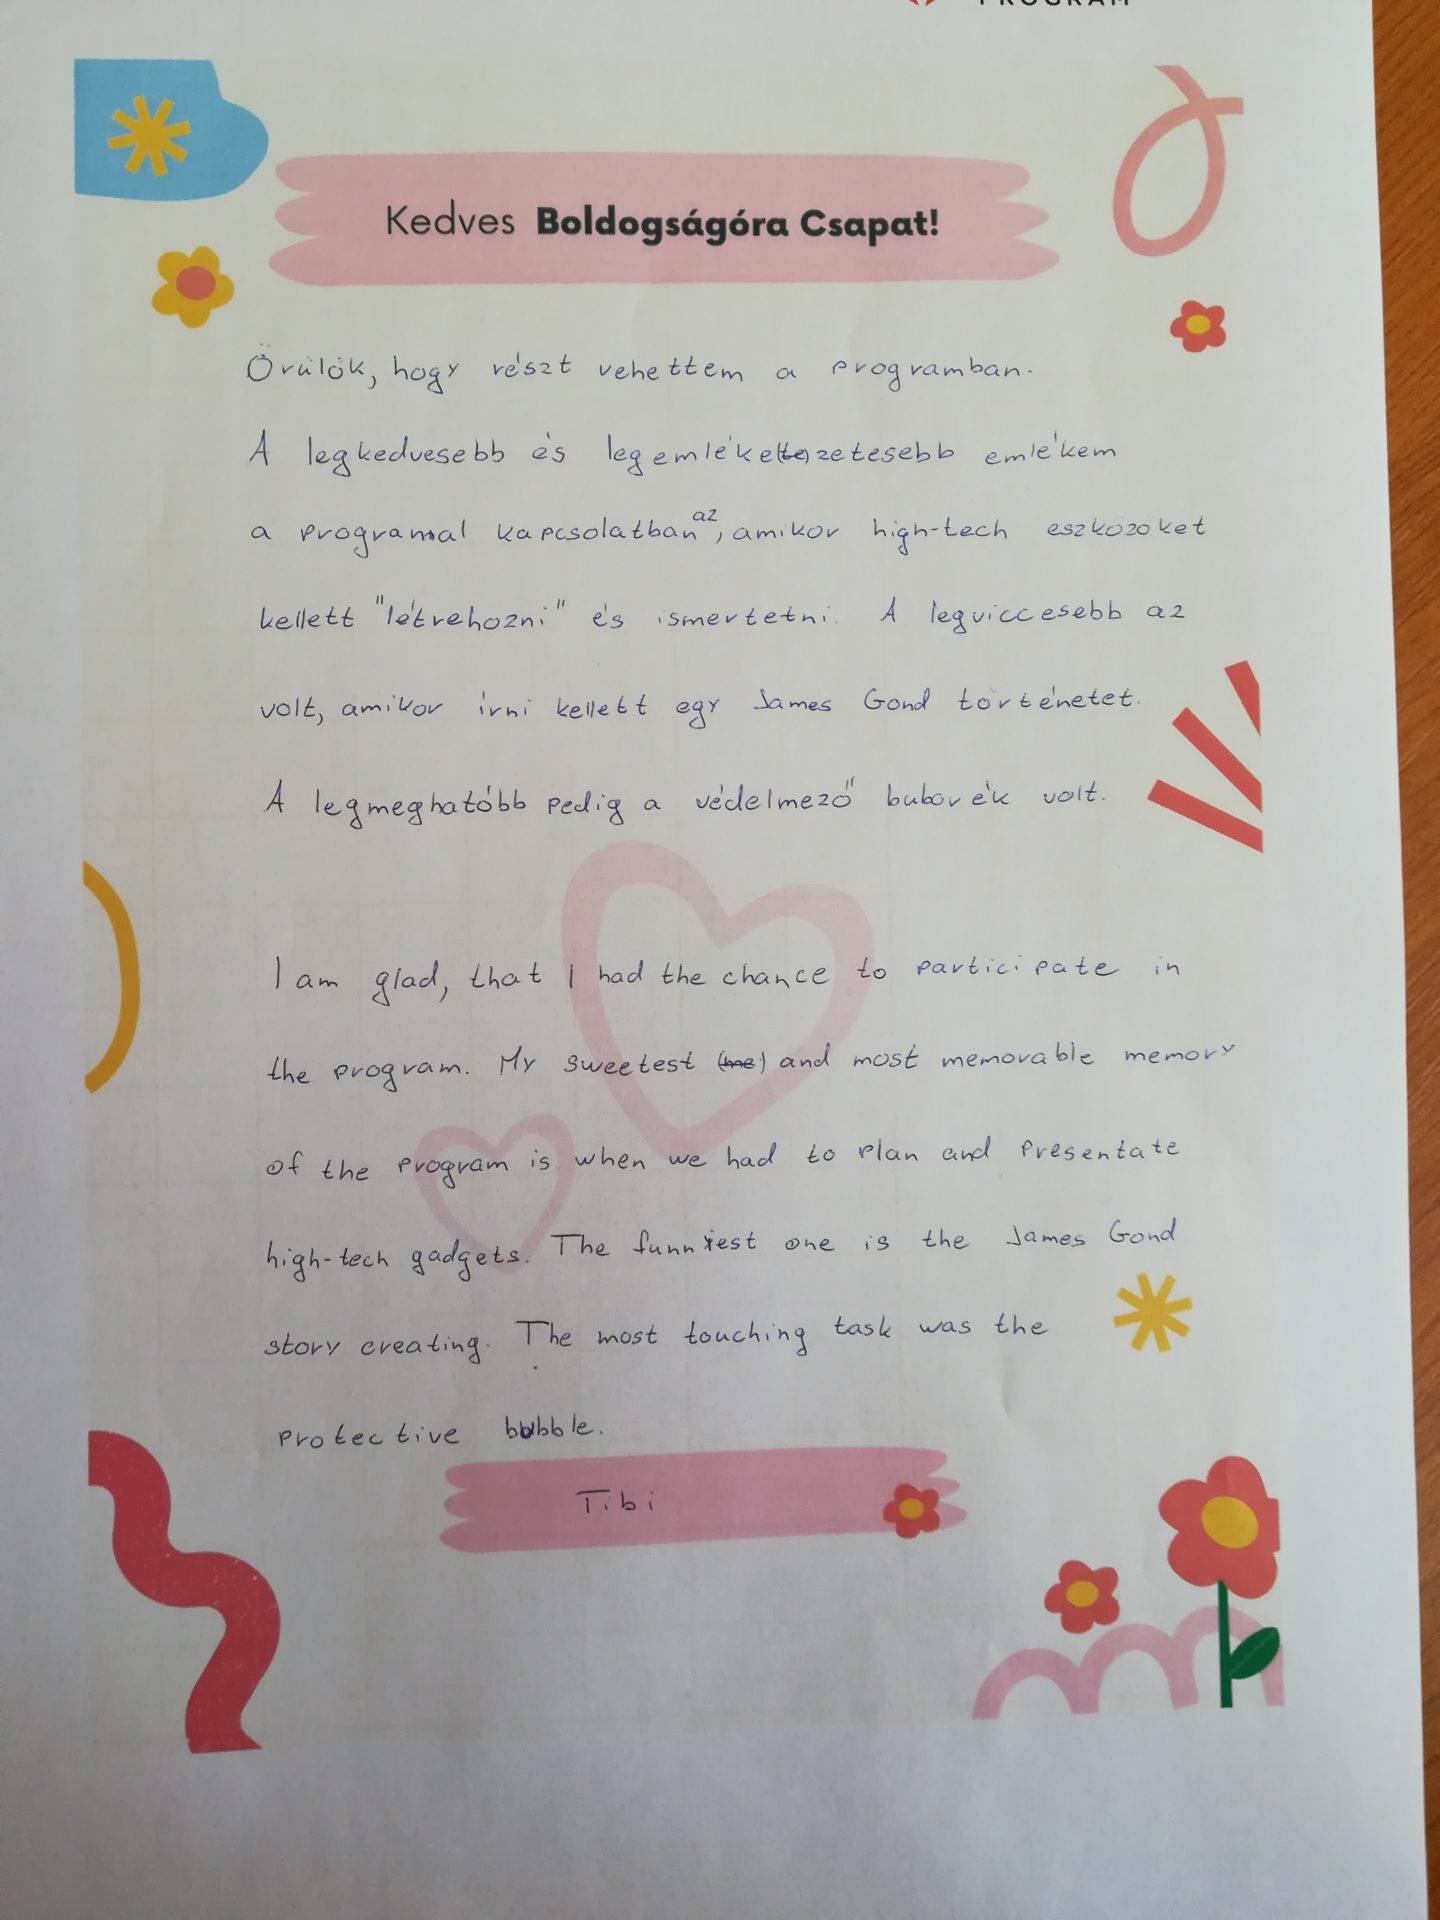 PROGRAM
Kedves Boldogságóra Csapat!
Örülök, hogy részt vehettem a programban.
A legkedvesebb és legemléke(te)zetesebb emlékem
a programal kapcsolatban az, amikor high-tech eszközöket
kellett "létrehozni" és ismertetni. A legviccesebb az
volt, amikor írni kellett egy James Gond történetet.
A legmeghatóbb pedig a védelmező buborék volt.
I am glad, that I had the chance to participate in
the program. My sweetest (me) and most memorable memory
of the program is when we had to plan and presentate
high-tech gadgets. The funniest one is the James Gond
story creating. The most touching task was the
protective bubble.
Tibi